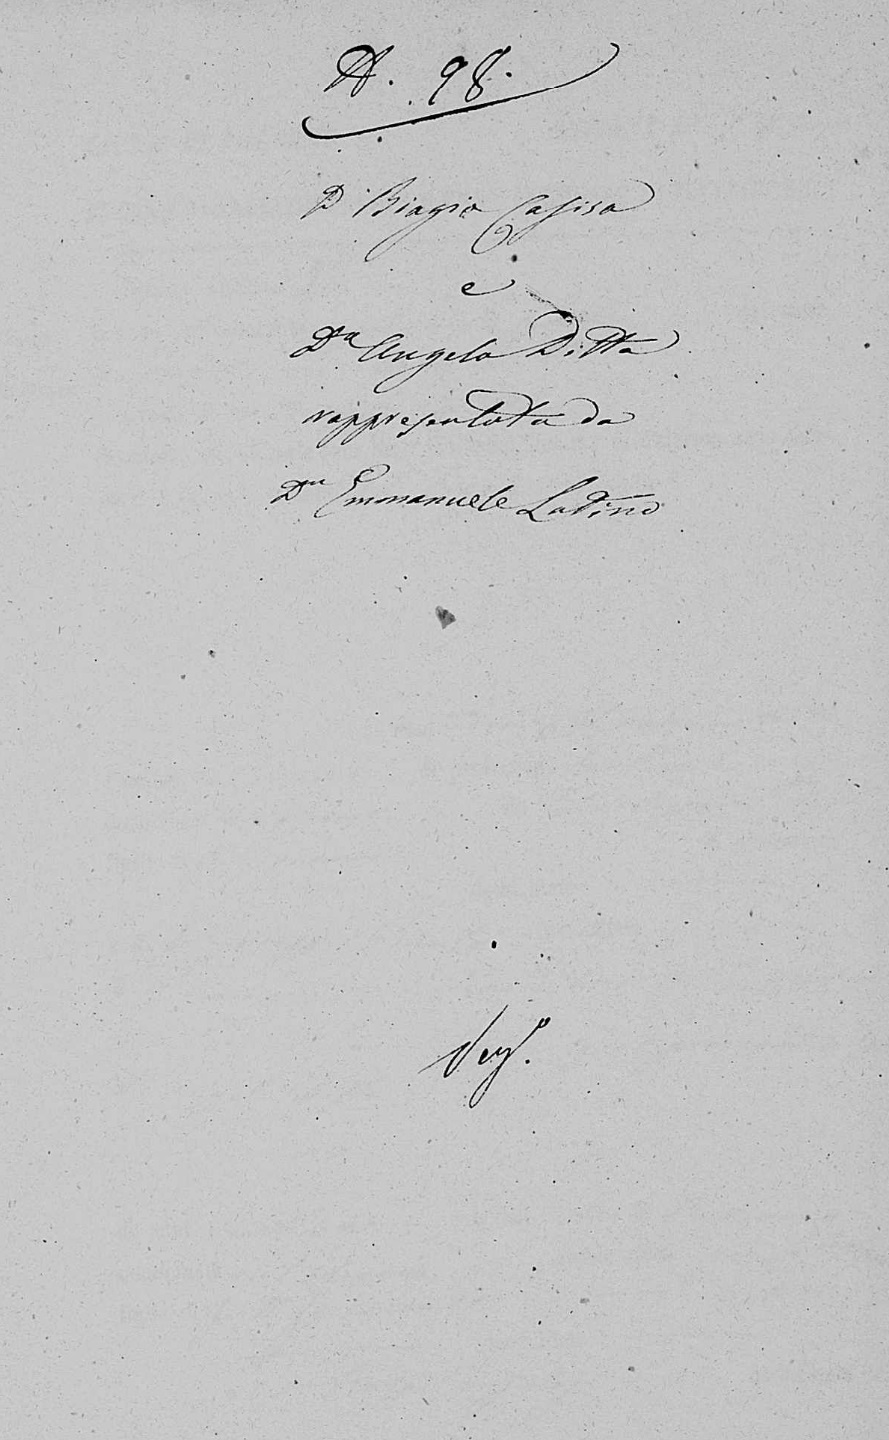 N. 98.
D. Biagio Casisa
e
Dna Angela Ditta
rappresentata da
Dn Emmanuele Latino